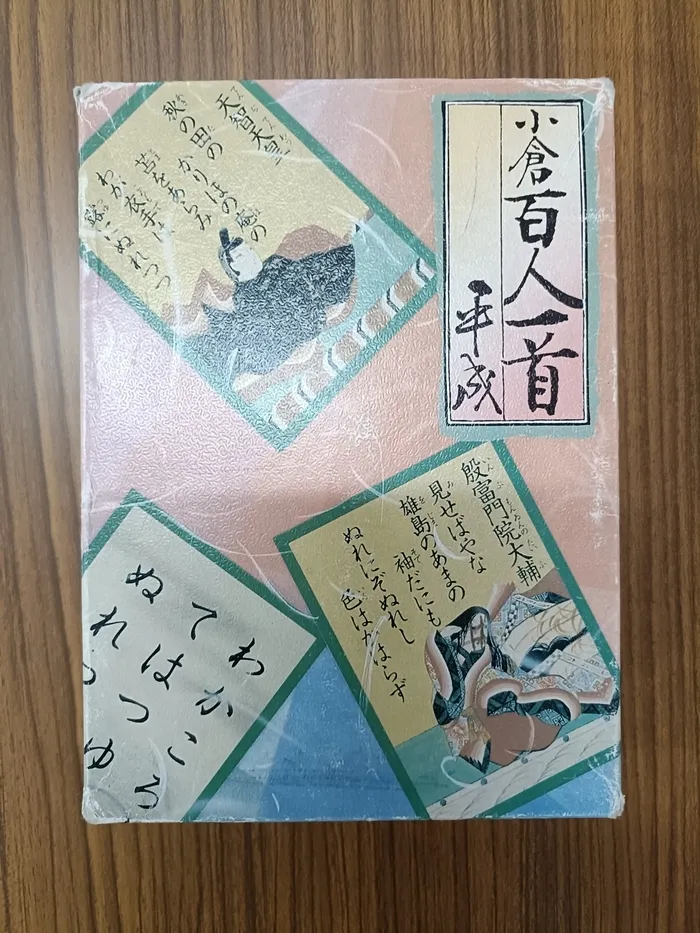 小倉百人一首
平成
天智天皇
秋の田の かりほの庵の
苫をあらみ
わが衣手は
露にぬれつつ
殷富門院大輔
見せばやな
雄島のあまの
袖だにも
ぬれにぞぬれし
色はかはらず
わかころ
てはつゆ
ぬれつ